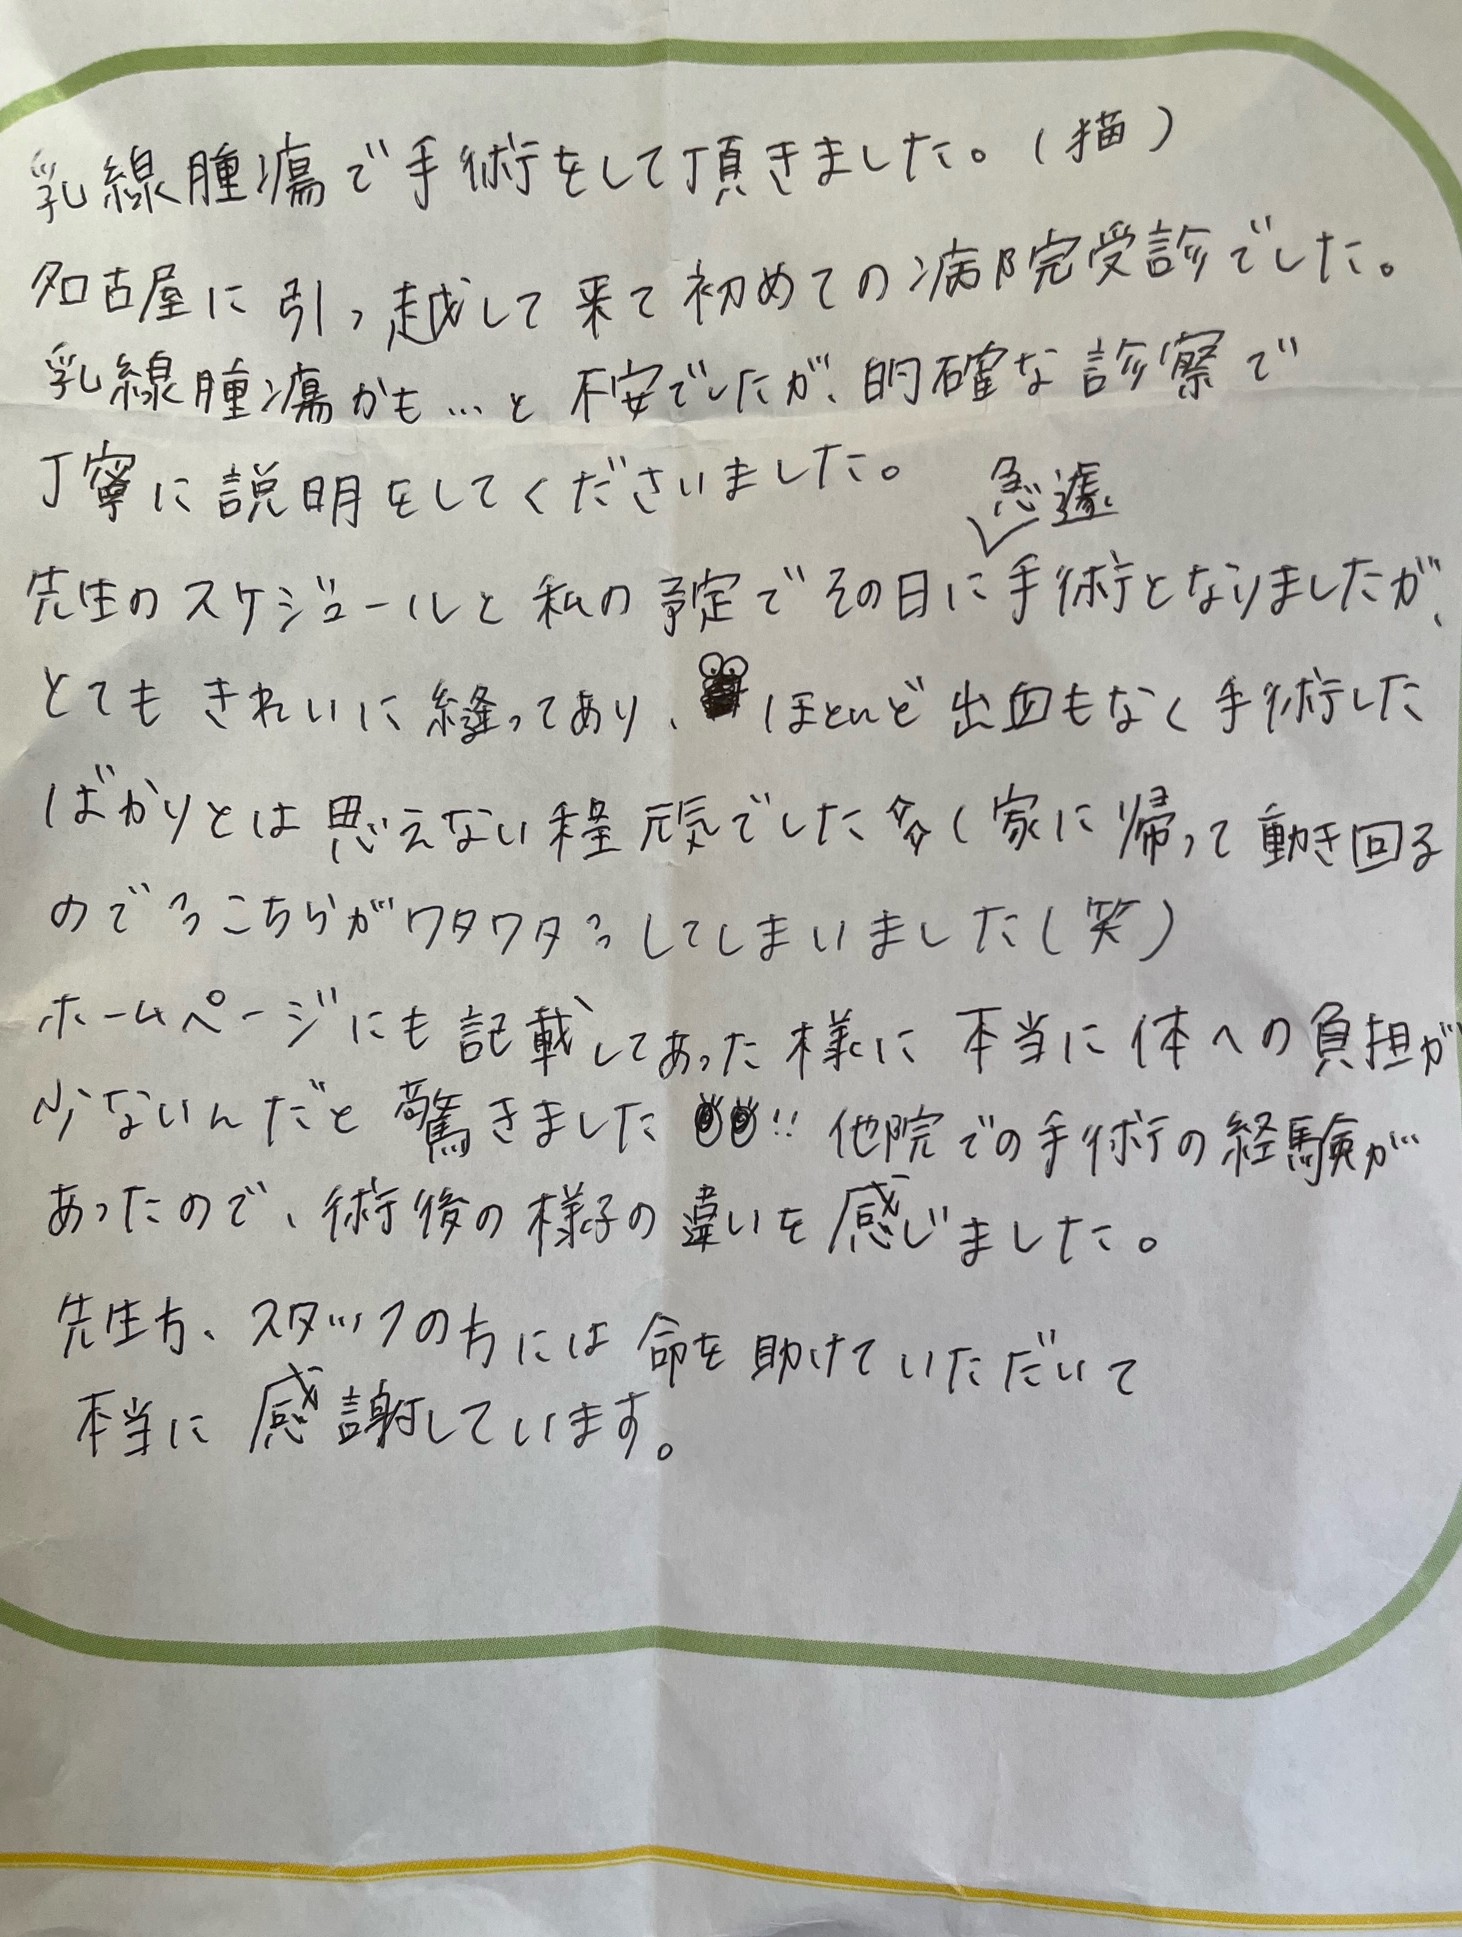 乳線腫瘍で手術をして頂きました。(猫)
名古屋に引っ越して来て初めての病院受診でした。
乳線腫瘍かも…と不安でしたが、的確な診察で
丁寧に説明をしてくださいました。
先生のスケジュールと私の予定でその日に急遽手術となりましたが、
とてもきれいに縫ってあり、ほとんど出血もなく手術した
ばかりとは思えない程元気でした(家に帰って動き回る
のでこちらがワタワタしてしまいました(笑)
ホームページにも記載してあった様に本当に体への負担が
少ないんだと驚きました!! 他院での手術の経験が
あったので、術後の様子の違いを感じました。
先生方、スタッフの方には命を助けていただいて
本当に感謝しています。